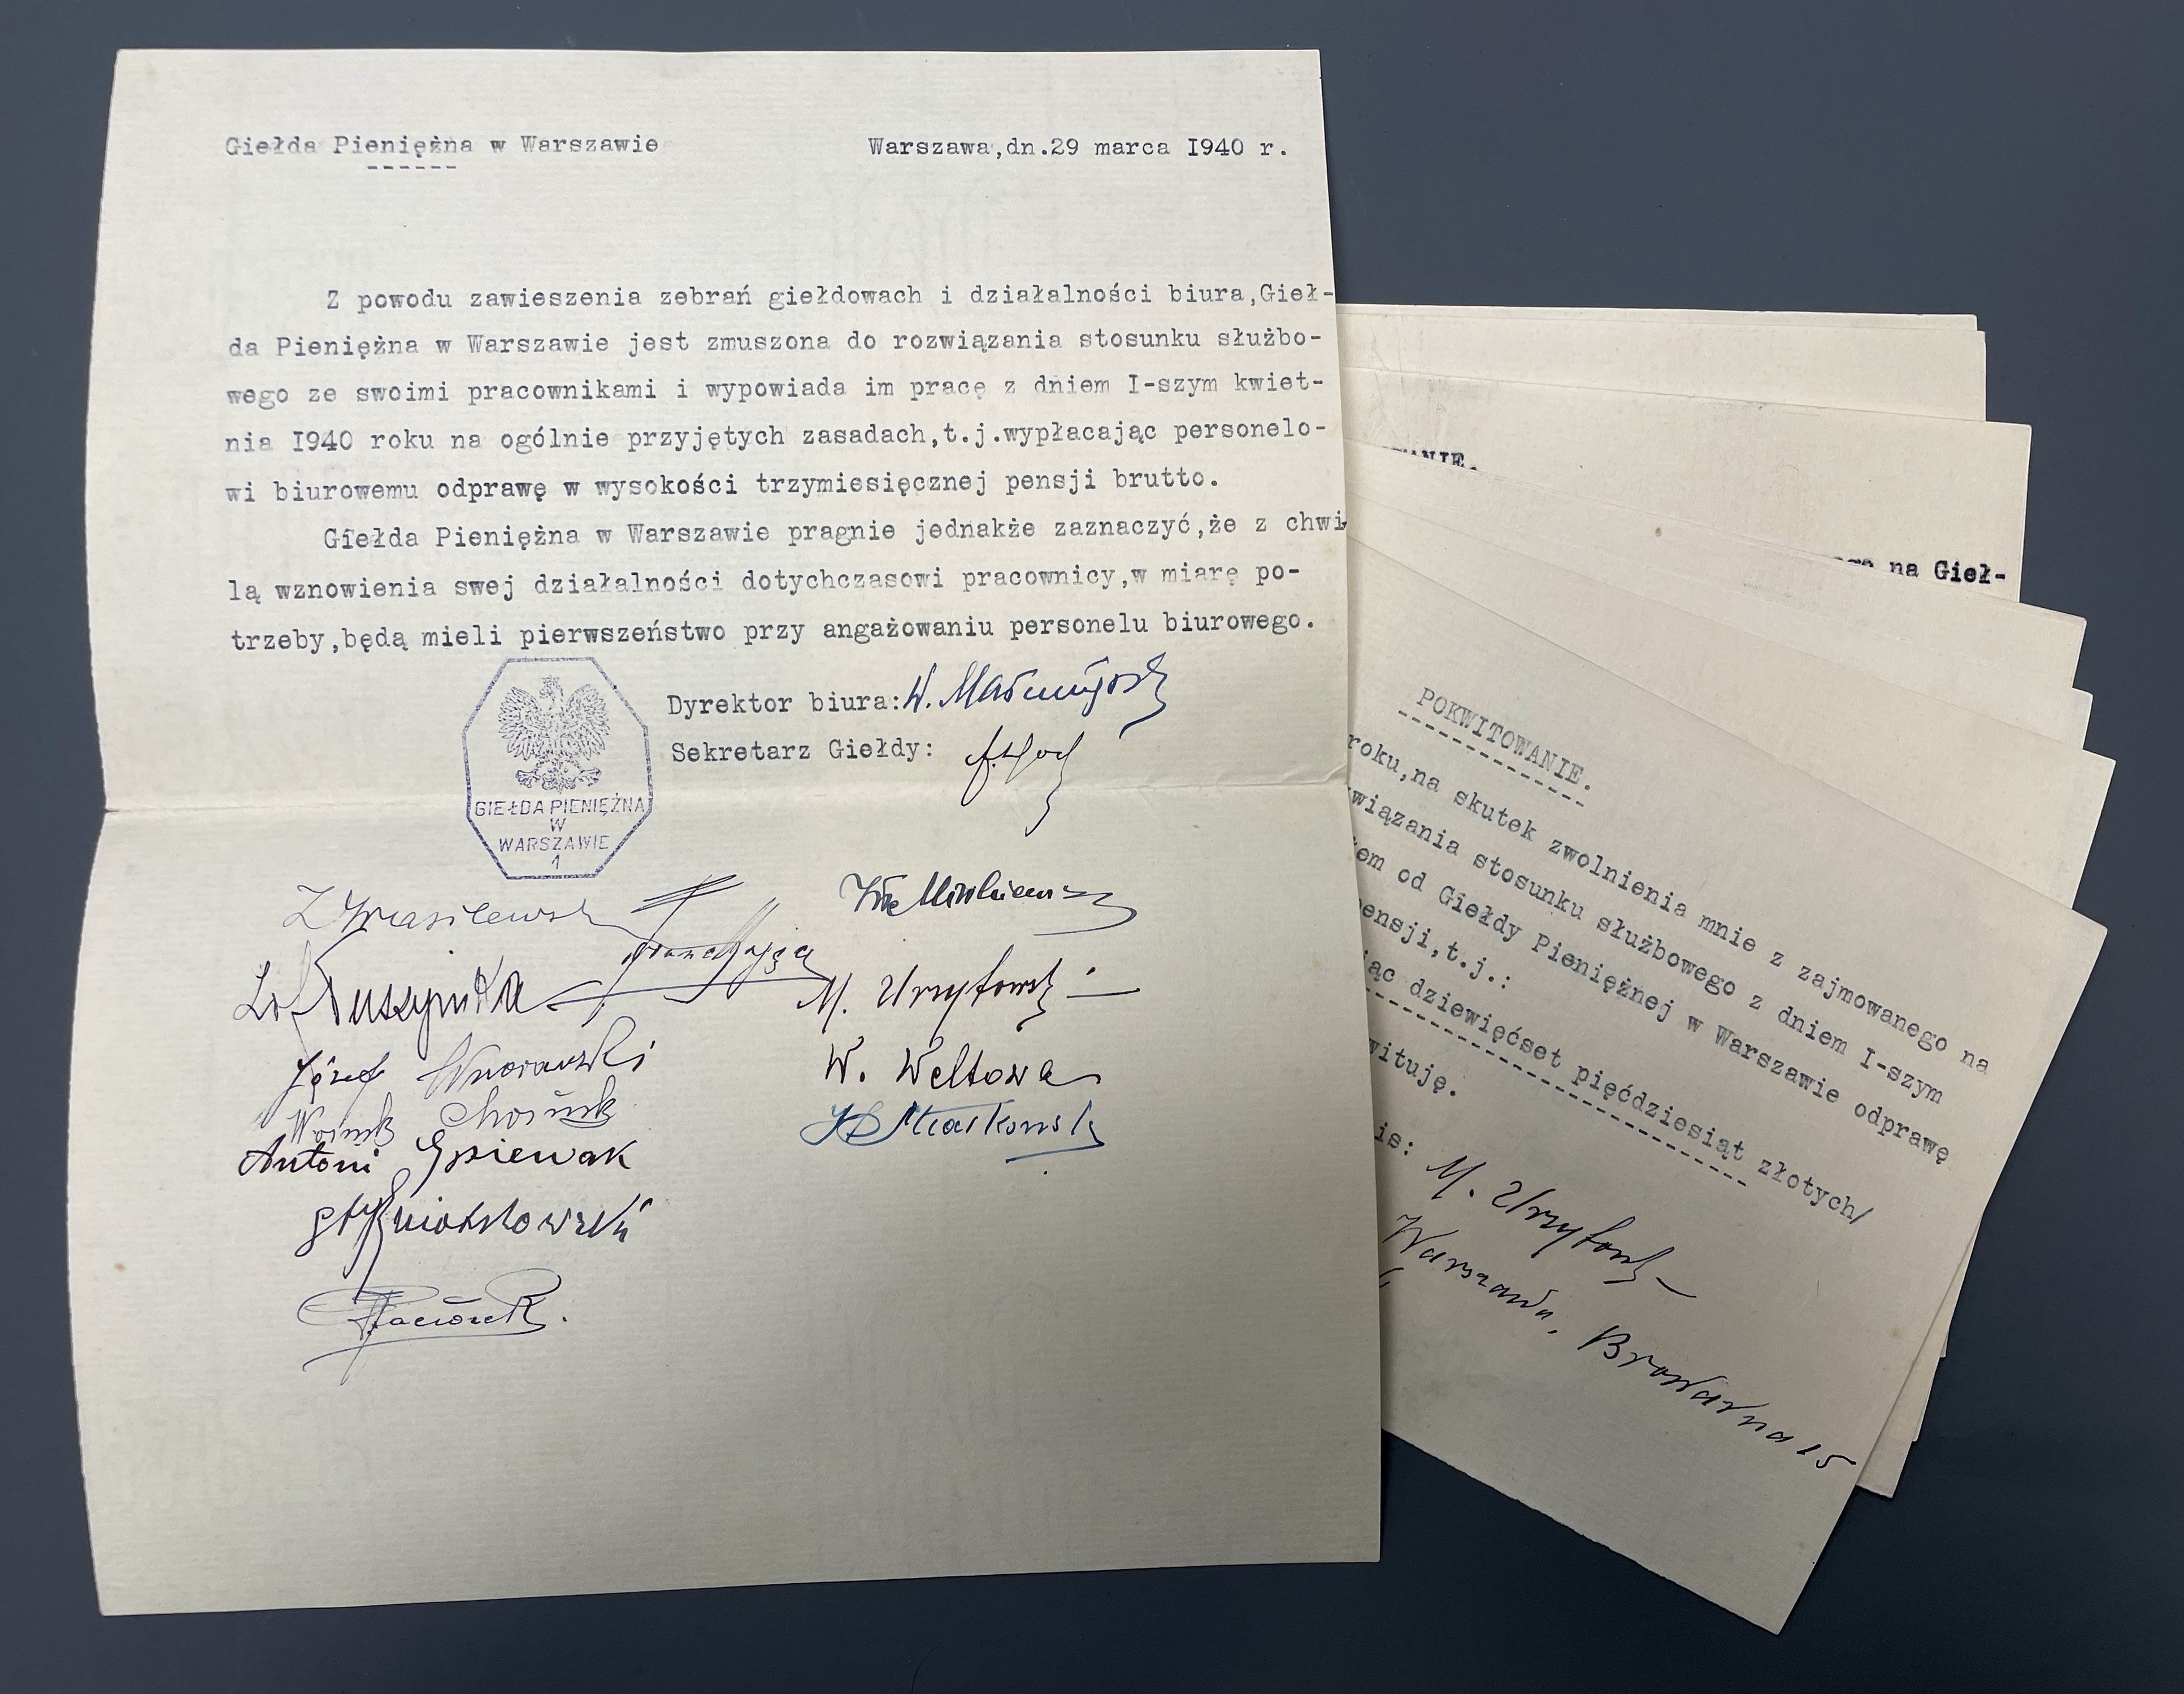 Giełda Pieniężna w Warszawie
Warszawa,dn.29 marca I940 r.
Z powodu zawieszenia zebrań giełdowach i działalności biura,Gieł-
da Pieniężna w Warszawie jest zmuszona do rozwiązania stosunku służbo-
wego ze swoimi pracownikami i wypowiada im pracę z dniem I-szym kwiet-
nia I940 roku na ogólnie przyjętych zasadach,t.j.wypłacając personelo-
wi biurowemu odprawę w wysokości trzymiesięcznej pensji brutto.
Giełda Pieniężna w Warszawie pragnie jednakże zaznaczyć,że z chwi
lą wznowienia swej działalności dotychczasowi pracownicy,w miarę po-
trzeby,będą mieli pierwszeństwo przy angażowaniu personelu biurowego.
Dyrektor biura: W.
Sekretarz Giełdy:
GIEŁDA PIENIĘŻNA
W
WARSZAWIE
1
Józef
Antoni
M.
W. Weltowa
NIE.
na Gieł-
POKWITOWANIE.
roku,na skutek zwolnienia mnie z zajmowanego na
wiązania stosunku służbowego z dniem I-szym
em od Giełdy Pieniężnej w Warszawie odprawę
ensji,t.j.:
ąc dziewięćset pięćdziesiąt złotych/
wituję.
is: M.
Warszawa, Browarna 15